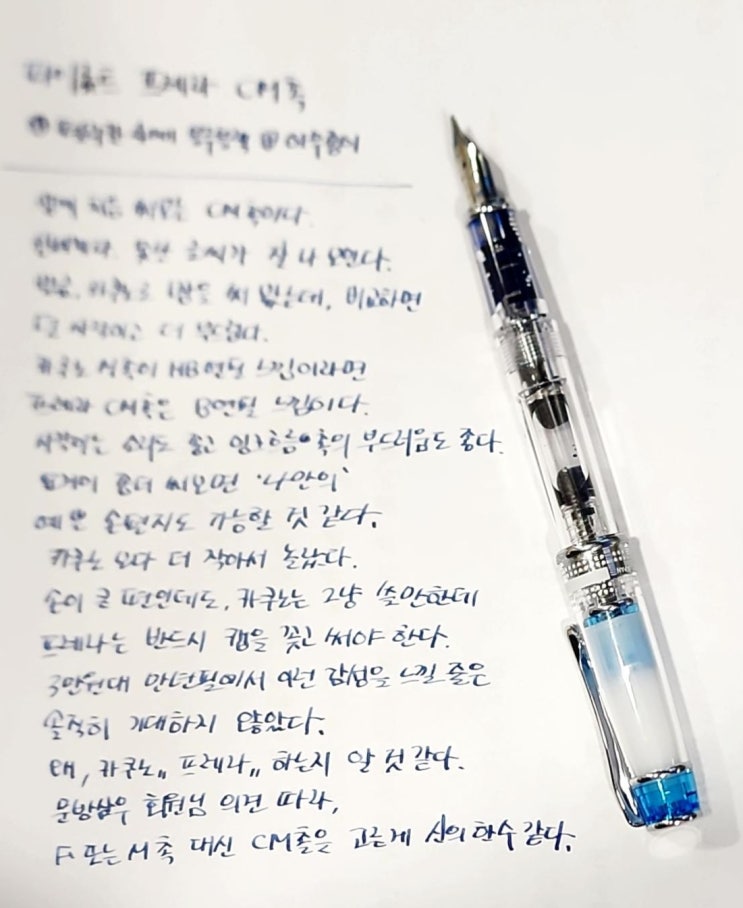 파이롯트 프레라 CM촉
처음 써보는 CM촉이다.
글씨가 잘 나오면다.
카쿠노로 써 봤는데, 비교하면
더 사각이고 더 부드럽다.
카쿠노 촉이 HB연필 느낌이라면
프레라 CM촉은 B연필 느낌이다.
사각이는 소리도 좋고 잉크흐름 촉의 부드러움도 좋다.
좀더 써보면 '나만의'
예쁜 손편지도 가능할 것 같다.
카쿠노 보다 더 작아서 놀랐다.
손이 큰 편인데도, 카쿠노는 그냥 쓸만한데
프레라는 반드시 캡을 꽂고 써야 한다.
3만원대 만년필에서 이런 감성을 느낄 줄은
솔직히 기대하지 않았다.
왜, 카쿠노,, 프레라,, 하는지 알 것 같다.
문방삼우 회원님 의견 따라,
F 또는 M촉 대신 CM촉을 고른게 신의한수 같다.